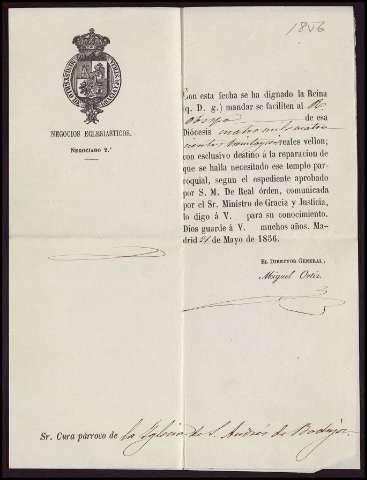 1856
NEGOCIOS ECLESIASTICOS.
NEGOCIADO 2.º
Con esta fecha se ha dignado la Reina
(q. D. g.) mandar se faciliten al R.
Obispo de esa
Diócesis cuatro mil cuatro-
cientos reales vellon;
con esclusivo destino á la reparacion de
que se halla necesitado ese templo par-
roquial, segun el espediente aprobado
por S. M. De Real órden, comunicada
por el Sr. Ministro de Gracia y Justicia,
lo digo á V. para su conocimiento.
Dios guarde á V. muchos años. Ma-
drid de Mayo de 1856.
EL DIRECTOR GENERAL,
Miguel Ortiz.
Sr. Cura párroco de la Iglesia de S. Andrés de Badajoz.